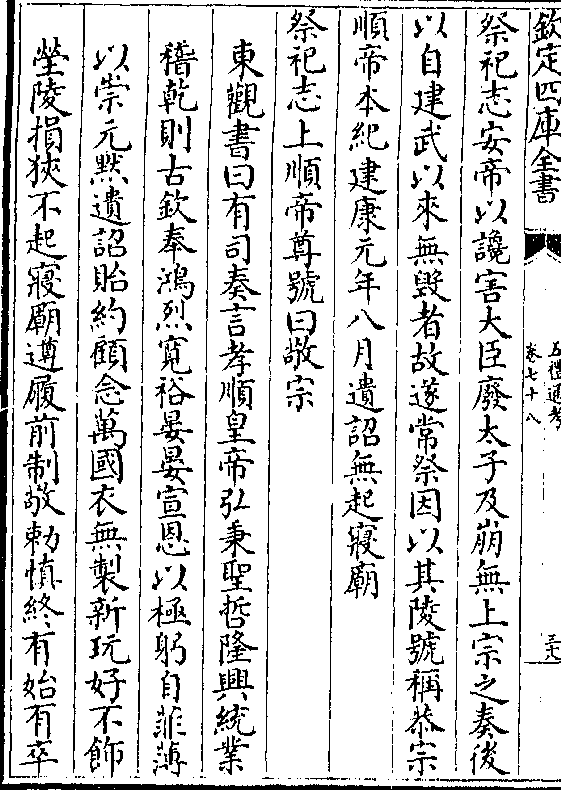 欽定四庫全書
五禮通考
卷七十八
三六
祭祀志安帝以讒害大臣廢太子及崩無上宗之奏後
以自建武以來無毀者故遂常祭因以其陵號稱恭宗
順帝本紀建康元年八月遺詔無起寢廟
祭祀志上順帝尊號曰敬宗
東觀書曰有司奏言孝順皇帝弘秉聖哲隆興統業
稽乾則古欽奉鴻烈寛裕晏晏宣恩以極躬自菲薄
以崇元黙遺詔貽約顧念萬國衣無製新玩好不飾
塋陵損狹不起寢廟遵履前制敬勅慎終有始有卒